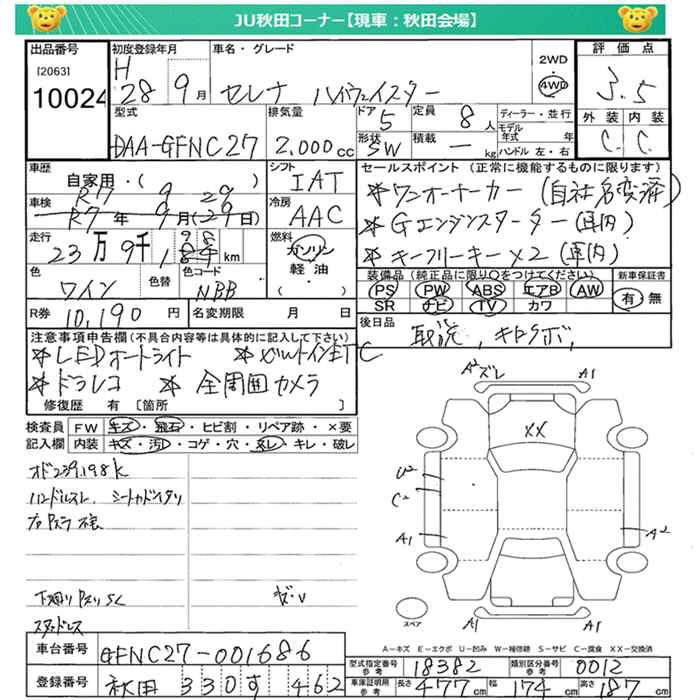 JU秋田コーナー【現車：秋田会場】
出品番号
[2063]
10024
初度登録年月
H
28 9月
車名・グレード
セレナ ハイウェイスター
2WD
4WD
評価点
3.5
外装 内装
C. C.
型式
DAA-GFNC27
排気量
2,000cc
ドア 5
形状 SW
定員 8人
積載 ー kg
ディーラー・並行
モデル年式 年
ハンドル 左・右
車歴
自家用・( )
車検
R7 9 29
R7年 9月(29日)
走行
23万9千198km
シフト
IAT
冷房
AAC
燃料
ガソリン
軽油・
( )
色
ワイン
色替
色コード
NBB
R券 10,190円
名変期限 月 日
セールスポイント（正常に機能するものに限ります）
＊ワンオーナーカー（自社名変済）
＊Gエンジンスターター（車内）
＊キーフリーキー×2（車内）
装備品（純正品に限り○をつけてください）
PS PW ABS エアB AW
SR ナビ TV カワ
新車保証書
有・無
後日品
取説、キロクボ、
注意事項申告欄（不具合内容等は具体的に記入して下さい）
＊LEDオートライト ＊ビルトインETC
＊ドラレコ ＊全周囲カメラ
修復歴 有 [箇所 ]
検査員記入欄
FW キズ・飛石・ヒビ割・リペア跡・×要
内装 キズ・汚・コゲ・穴・スレ・キレ・破レ
オド239,198k
ハンドルスレ、シートカドイタリ
下廻りPスリSL
スタッドレス
A2 ズレ A1
XX
U2
C2
A1
A2
A1 A1
スペア
A＝キズ E＝エクボ U＝凹み W＝補修跡 S＝サビ C＝腐食 XX＝交換済
車台番号 GFNC27-001686
登録番号 秋田 330 す 462
型式指定番号 参考 18382
類別区分番号 参考 0012
車庫証明用 参考 長さ 477cm 幅 174cm 高さ 187cm